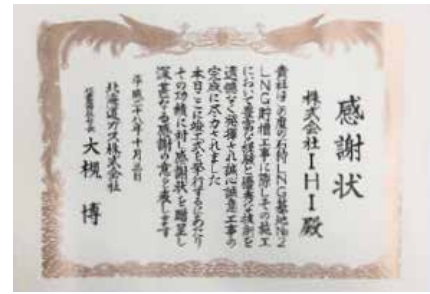 感謝状
株式会社IHI殿
貴社はこの度の石狩LNG基地No2
LNG貯槽工事に際しその施工
において豊富な経験と優秀な技術を
遺憾なく発揮され誠心誠意工事の
完成に尽力されました
本日ここに竣工式を挙行するにあたり
その功績に対し感謝状を贈呈し
深甚なる感謝の意を表します
平成二十八年十月三日
北海道ガス株式会社
代表取締役社長 大槻 博